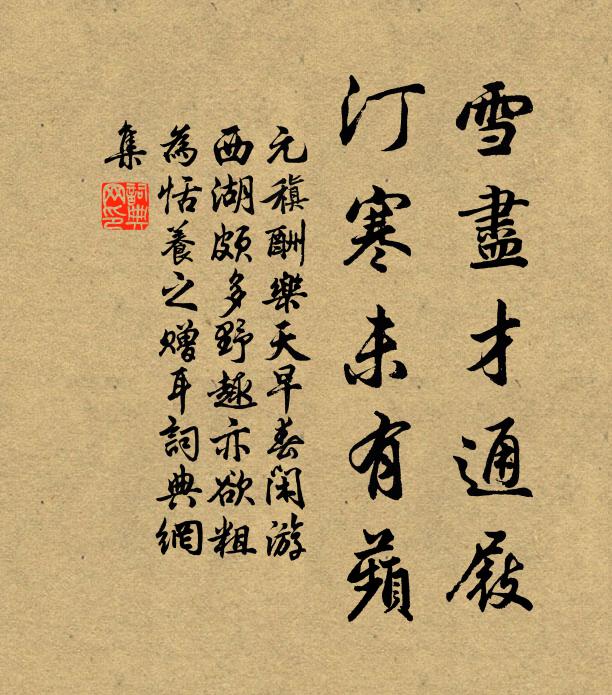 雪盡才通屐
汀寒未有蘋
元稹酬樂天早春閑游
西湖頗多野趣亦欲粗
為恬養之贈耳詞典網
集
詞典網印